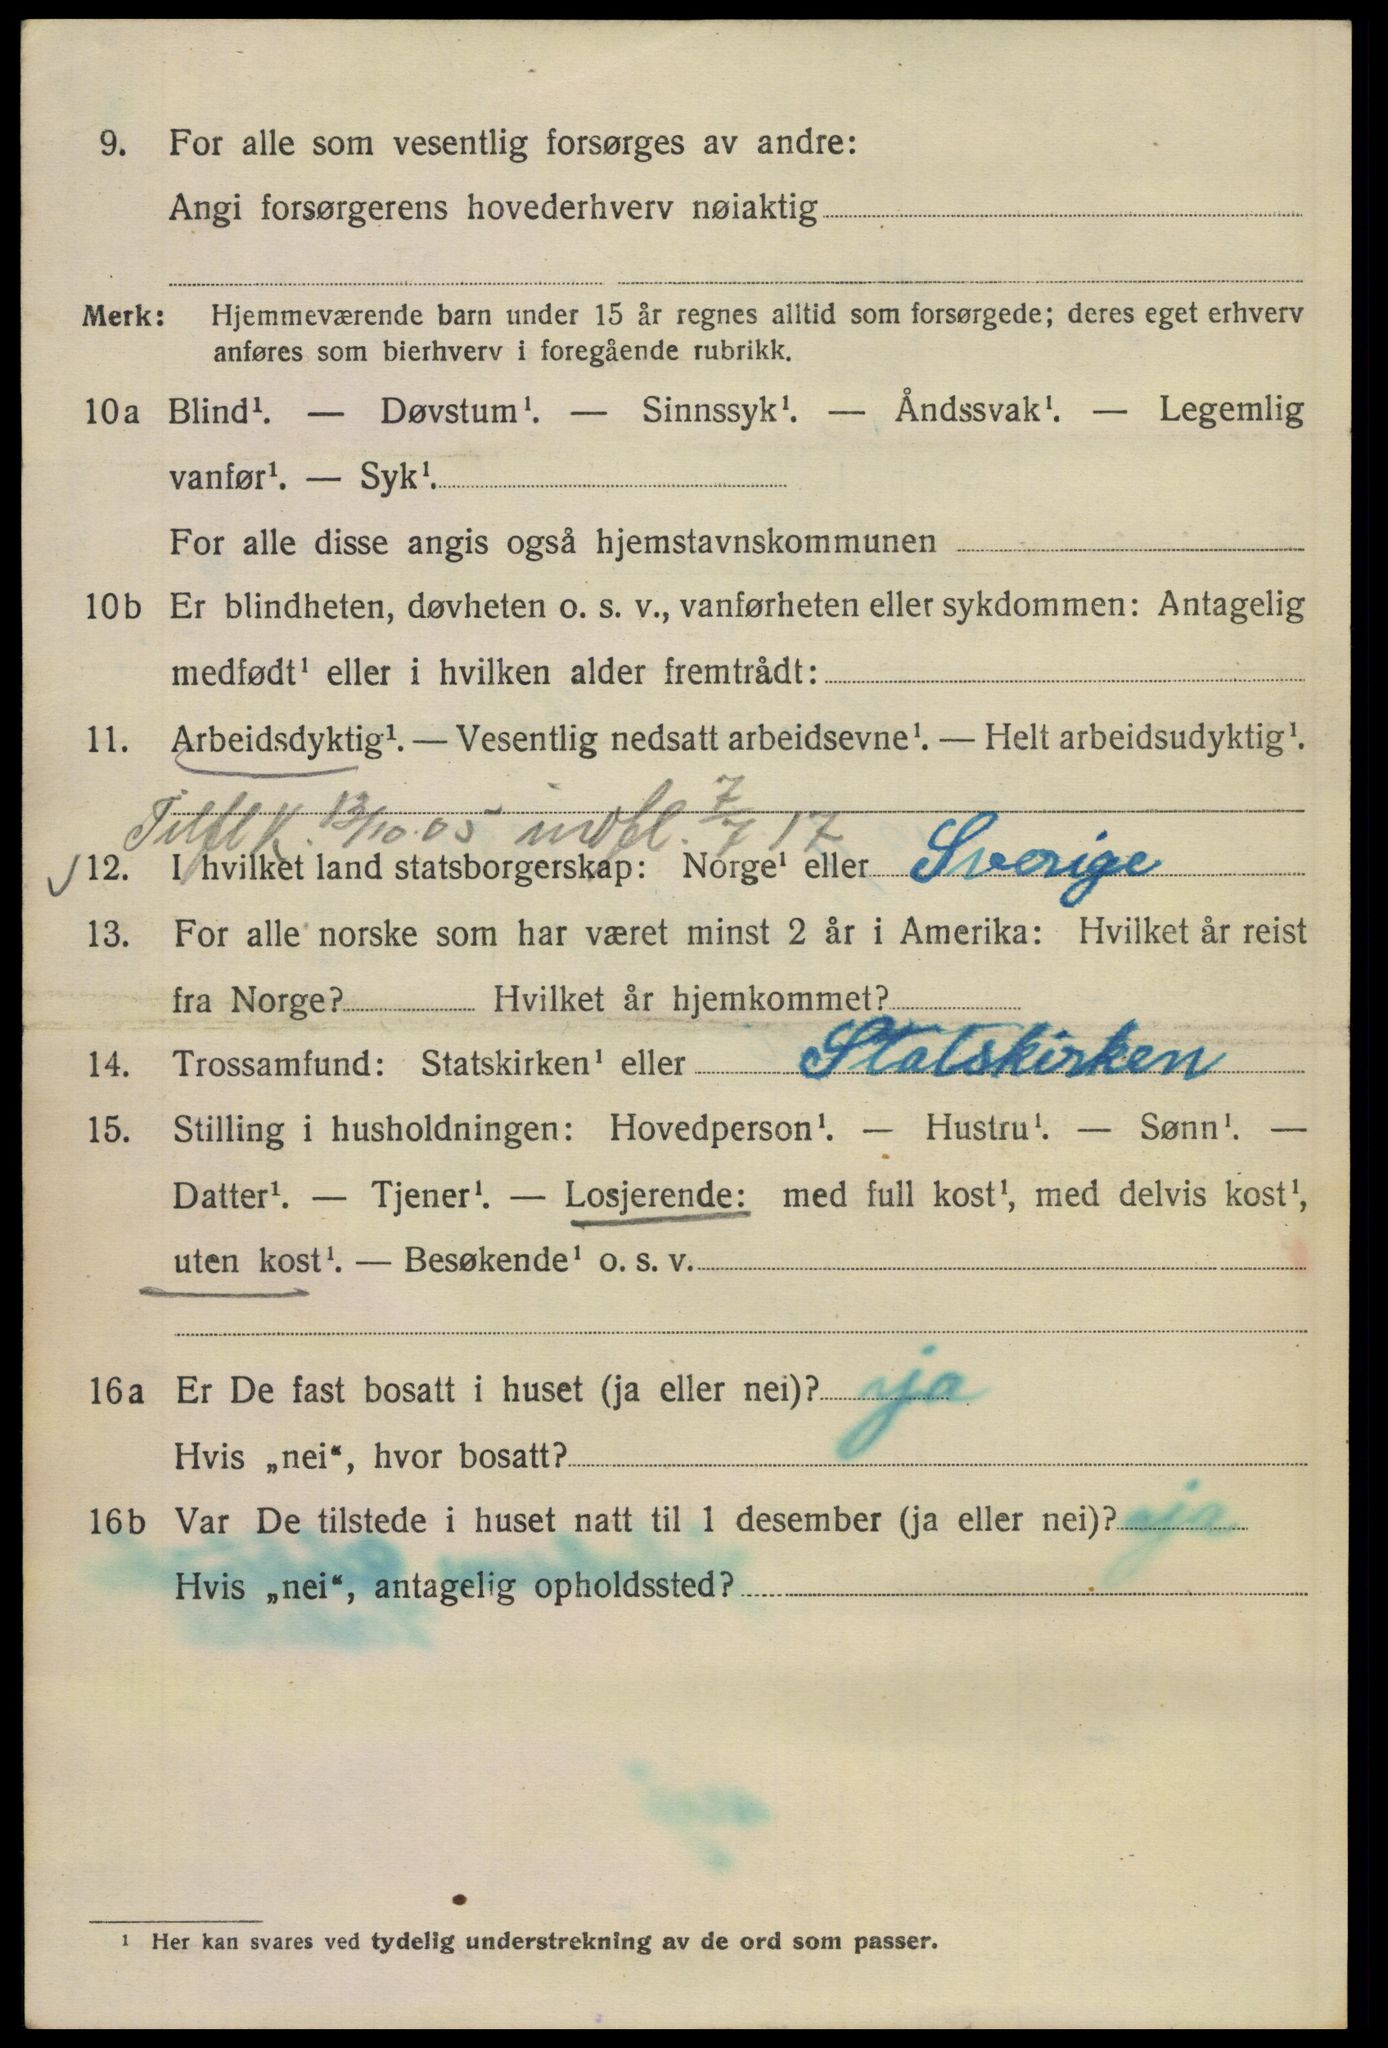 9. For alle som vesentlig forsørges av andre:
Angi forsørgerens hovederhverv nøiaktig
Merk: Hjemmeværende barn under 15 år regnes alltid som forsørgede; deres eget erhverv
anføres som bierhverv i foregående rubrikk.
10a Blind¹. — Døvstum¹. — Sinnssyk¹. — Åndssvak¹. — Legemlig
vanfør¹. — Syk¹.
For alle disse angis også hjemstavnskommunen
10b Er blindheten, døvheten o. s. v., vanførheten eller sykdommen: Antagelig
medfødt¹ eller i hvilken alder fremtrådt:
11. Arbeidsdyktig¹. — Vesentlig nedsatt arbeidsevne¹. — Helt arbeidsudyktig¹.
Tilfl. K. 13/10.05 indfl. 7/7 17
12. I hvilket land statsborgerskap: Norge¹ eller Sverige
13. For alle norske som har været minst 2 år i Amerika: Hvilket år reist
fra Norge? Hvilket år hjemkommet?
14. Trossamfund: Statskirken¹ eller Statskirken
15. Stilling i husholdningen: Hovedperson¹. — Hustru¹. — Sønn¹. —
Datter¹. — Tjener¹. — Losjerende: med full kost¹, med delvis kost¹,
uten kost¹. — Besøkende¹ o. s. v.
16a Er De fast bosatt i huset (ja eller nei)? ja
Hvis „nei“, hvor bosatt?
16b Var De tilstede i huset natt til 1 desember (ja eller nei)? ja
Hvis „nei“, antagelig opholdssted?
¹ Her kan svares ved tydelig understrekning av de ord som passer.